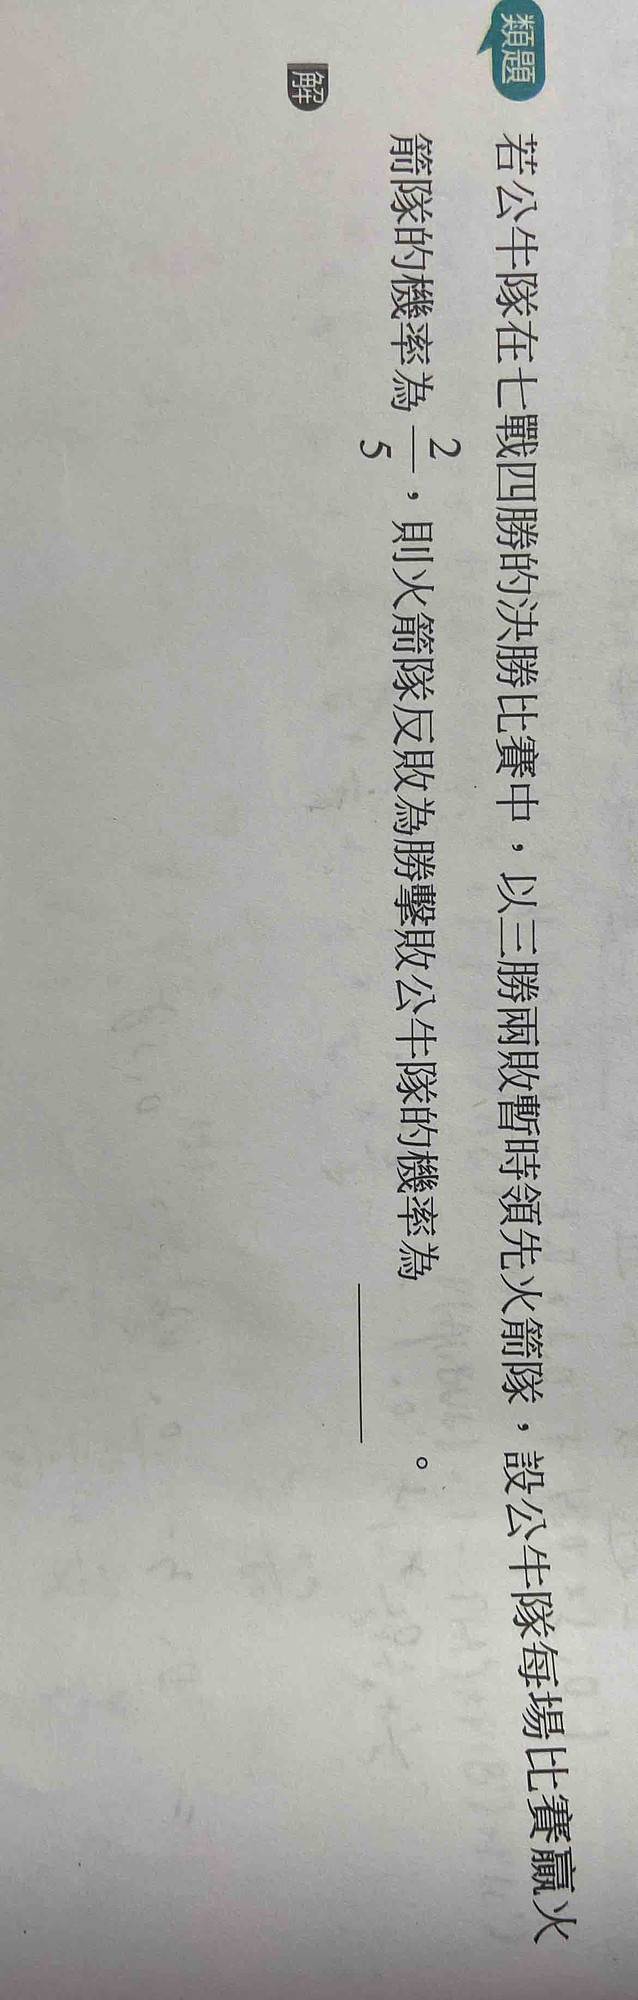 類題
若公牛隊在七戰四勝的決勝比賽中，以三勝兩敗暫時領先火箭隊，設公牛隊每場比賽贏火
箭隊的機率為 2/5，則火箭隊反敗為勝擊敗公牛隊的機率為＿＿＿。
解